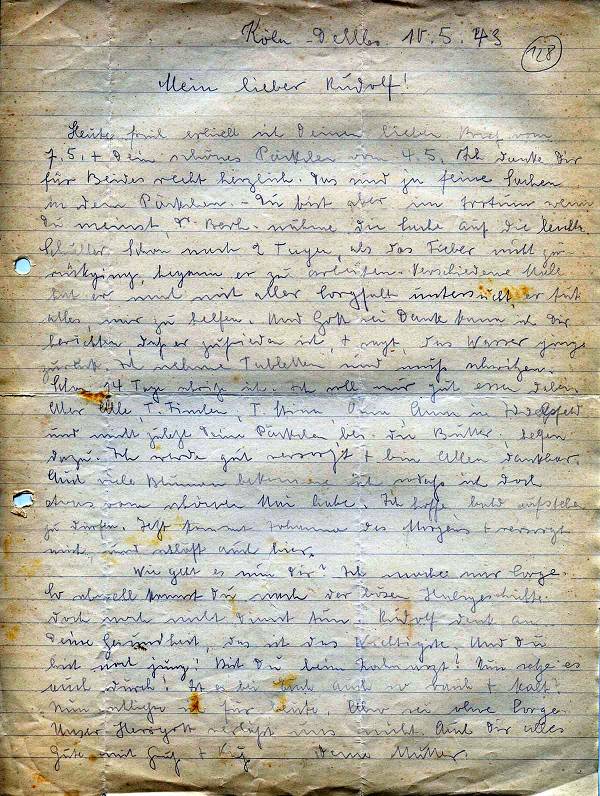 Köln-Dellbr. 10.5.43
128
Mein lieber Rudolf!
Heute früh erhielt ich Deinen lieben Brief vom
7.5. + Dein schönes Päckchen vom 4.5. Ich danke Dir
für Beides recht herzlich. Das sind ja feine Sachen
in dem Päckchen. - Du bist aber im Irrtum wenn
Du meinst, Dr. nähme die Sache auf die leichte
Schulter. Schon nach 2 Tagen, als das Fieber nicht zu-
rückging, begann er zu Verschiedene Male
hat er mich mit aller Sorgfalt untersucht, er tut
alles, mir zu helfen. Und Gott sei Dank kann ich Dir
berichten, daß er zufrieden ist, + sagt, das Wasser ginge
zurück. Ich nehme Tabletten und muß schwitzen.
Schon 14 Tage ich. Ich soll mir gut essen
Aber Alle, T. T. Anna in
und nicht zuletzt Deine Päckchen bes. die Butter, tragen
dazu. Ich werde gut versorgt + bin Allen dankbar.
Auch viele Blumen bekomme ich sodaß ich doch
etwas vom schönen Mai habe. Ich hoffe bald aufstehen
zu dürfen. Jetzt kommt Johanna des Morgens + versorgt
mich, und schläft auch hier.
Wie geht es nun Dir? Ich mache mir Sorge.
So schnell kannst Du nach der bösen Halsgeschichte
doch noch nicht Dienst tun. Rudolf denk an
Deine Gesundheit, das ist das Wichtigste. Und Du
bist noch jung! Bist Du beim Zahnarzt? Nun setze es
auch durch! Ist es bei Euch auch so + kalt?
Nun schließe ich für heute. Aber sei ohne Sorge.
Unser Herrgott verläßt uns nicht. Und Dir alles
Gute mit Gruß + Kuß Deine Mutter.